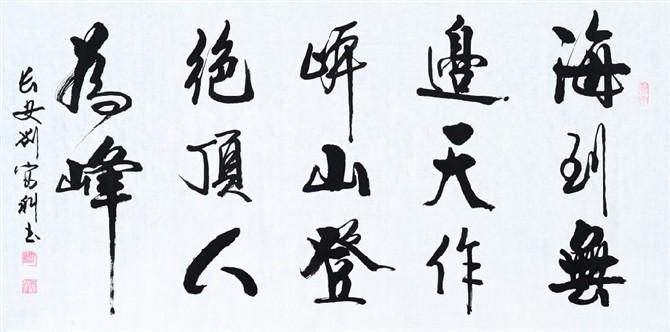 海到無
邊天作
岸山登
絶頂人
為峰
长安刘富科书